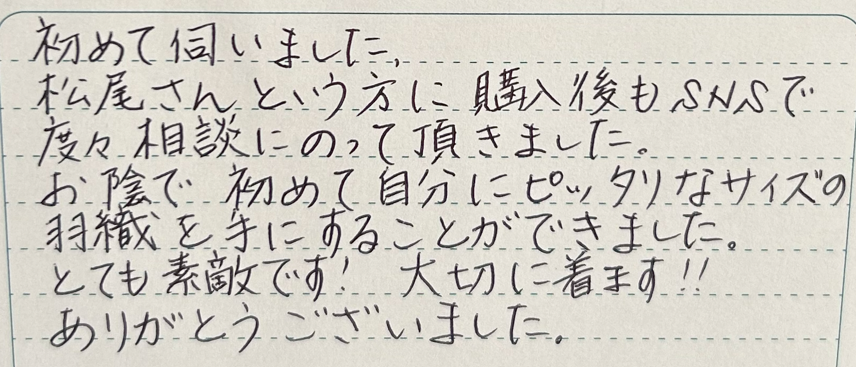 初めて伺いました。
松尾さんという方に購入後もSNSで
度々相談にのって頂きました。
お陰で初めて自分にピッタリなサイズの
羽織を手にすることができました。
とても素敵です! 大切に着ます!!
ありがとうございました。